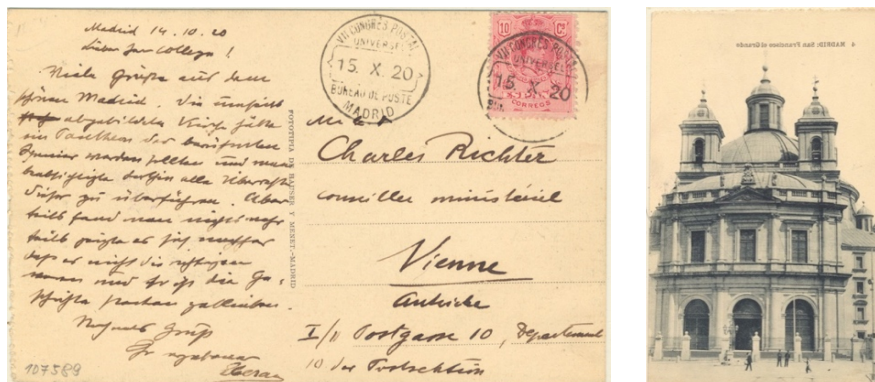 Madrid 14.10.20
Lieber Herr College!
Viele Grüße aus dem
schönen Madrid. Die umseits
abgebildete Kirche hätte
ein Pantheon der berühmten
Spanier werden sollen und man
beabsichtigte dorthin alle Überreste
dieser zu überführen. Aber
teils fand man nichts mehr
teils zeigte es sich nachher
daß es nicht die richtigen
waren und so ist die Ge-
schichte stecken geblieben.
Gruß
Ihr ergebener
107589
FOTOTIPIA DE HAUSER Y MENET.-MADRID
VII CONGRES POSTAL
UNIVERSEL
15. X. 20
BUREAU DE POSTE
MADRID
10 Cs.
CORREOS
VII CONGRES POSTAL
UNIVERSEL
15. X. 20
Charles Richter
conseiller ministériel
Vienne
Autriche
I/1 Postgasse 10, Departement
10 der Postsektion
4 MADRID: San Francisco el Grande